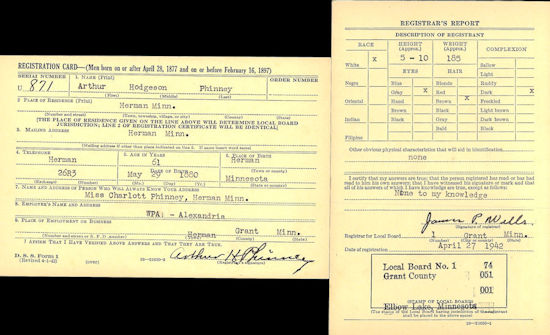 REGISTRATION CARD—(Men born on or after April 28, 1877 and on or before February 16, 1897)
SERIAL NUMBER
1. NAME (Print)
ORDER NUMBER
U 871
Arthur Hodgeson Phinney
(First) (Middle) (Last)
2. PLACE OF RESIDENCE (Print)
Herman Minn.
(Number and street) (Town, township, village, or city) (County) (State)
[THE PLACE OF RESIDENCE GIVEN ON THE LINE ABOVE WILL DETERMINE LOCAL BOARD
JURISDICTION; LINE 2 OF REGISTRATION CERTIFICATE WILL BE IDENTICAL]
3. MAILING ADDRESS
Herman Minn.
[Mailing address if other than place indicated on line 2. If same insert word same]
4. TELEPHONE
5. AGE IN YEARS
6. PLACE OF BIRTH
Herman
61
Herman
DATE OF BIRTH
(Town or county)
2683
May 29 1880
Minnesota
(Exchange) (Number)
(Mo.) (Day) (Yr.)
(State or country)
7. NAME AND ADDRESS OF PERSON WHO WILL ALWAYS KNOW YOUR ADDRESS
Miss Charlott Phinney, Herman Minn.
8. EMPLOYER'S NAME AND ADDRESS
WPA - Alexandria
9. PLACE OF EMPLOYMENT OR BUSINESS
Herman Grant Minn.
(Number and street or R. F. D. number) (Town) (County) (State)
I AFFIRM THAT I HAVE VERIFIED ABOVE ANSWERS AND THAT THEY ARE TRUE.
D. S. S. Form 1
(Revised 4-1-42) (over)
Arthur H Phinney
(Registrant's signature)
REGISTRAR'S REPORT
DESCRIPTION OF REGISTRANT
RACE
HEIGHT
(Approx.)
WEIGHT
(Approx.)
COMPLEXION
White X
5 - 10
185
Sallow
EYES
HAIR
Light
Negro
Blue
Blonde
Ruddy
Gray X
Red
Dark X
Oriental
Hazel
Brown X
Freckled
Brown
Black
Light brown
Indian
Black
Gray
Dark brown
Bald
Black
Filipino
Other obvious physical characteristics that will aid in identification
none
I certify that my answers are true; that the person registered has read or has had
read to him his own answers; that I have witnessed his signature or mark and that
all of his answers of which I have knowledge are true, except as follows:
None to my knowledge
James P. Wells
(Signature of registrar)
Registrar for Local Board 1 Grant Minn.
(Number) (City or county) (State)
Date of registration April 27 1942
Local Board No. 1 74
Grant County 051
001
Elbow Lake, Minnesota
(STAMP OF LOCAL BOARD)
(The stamp of the Local Board having jurisdiction of the registrant
shall be placed in the above space)